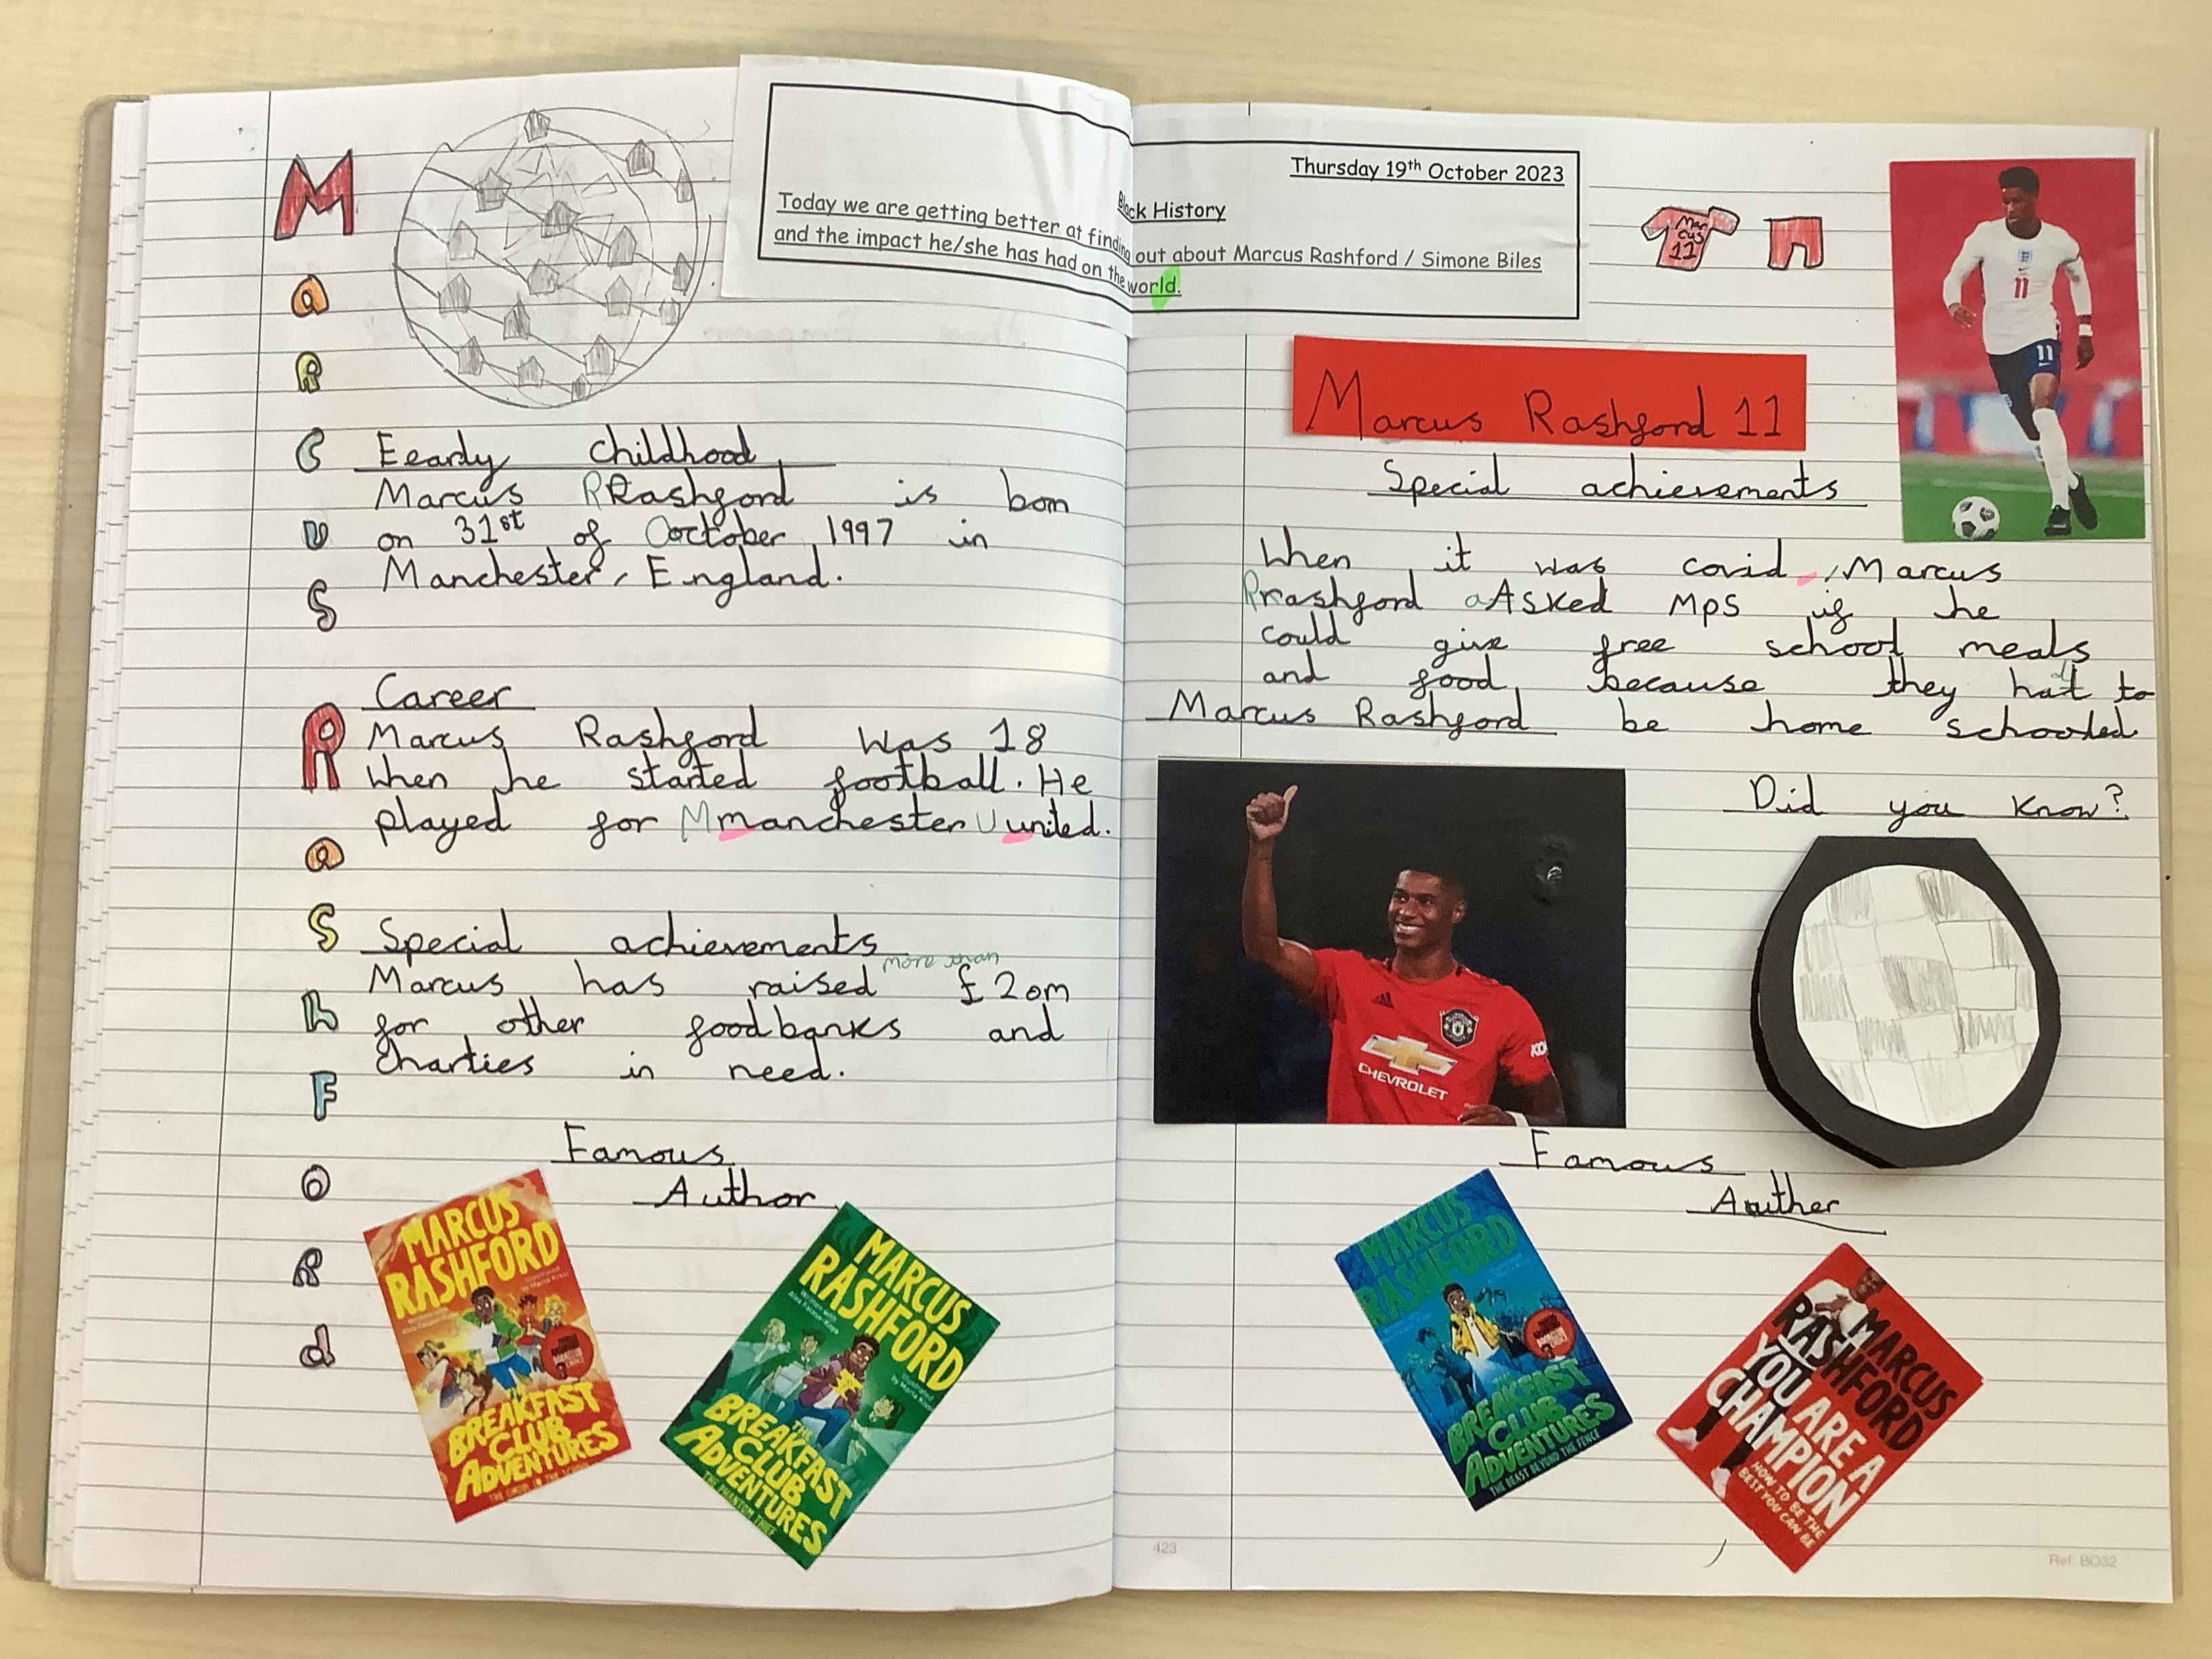 Thursday 19th October 2023
Black History
Today we are getting better at finding out about Marcus Rashford / Simone Biles
and the impact he/she has had on the world.
M
a
R
C
U
S
R
a
S
h
F
O
R
d
Eearly Childhood
Marcus RRashford is born
on 31st of Ooctober 1997 in
Manchester, England.
Career
Marcus Rashford was 18
when he started football. He
played for Mmanchester Uunited.
Special achievements
more than
Marcus has raised £20m
for other foodbanks and
charties in need.
Famous
Author
MARCUS
RASHFORD
THE
BREAKFAST
CLUB
ADVENTURES
MARCUS
RASHFORD
THE
BREAKFAST
CLUB
ADVENTURES
THE PHANTOM THIEF
Marcus
11
11
11
Marcus Rashford 11
Special achievements
When it was covid, Marcus
Rrashford aAsked MPs if he
could give free school meals
and food because they hadt to
be home schooled
Marcus Rashford
CHEVROLET
Did you know?
Famous
Auther
MARCUS
RASHFORD
THE
BREAKFAST
CLUB
ADVENTURES
THE BEAST BEYOND THE FENCE
MARCUS
RASHFORD
YOU ARE A
CHAMPION
HOW TO BE THE
BEST YOU CAN BE
423
Ref: BO32